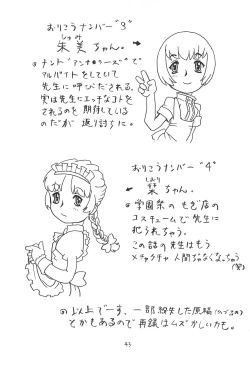 おりこうナンバー"3"
しゅみ
朱美ちゃん。
アルバイトをしていて
先生に呼びだされる。
実は先生にエッチなコトを
されるのを期待している
のだが返り討ちに。
おりこうナンバー"4"
しおり
栞ちゃん。
学園祭のもぎ店の
コスチュームで先生に
犯られちゃう。
この話の先生はもう
メチャクチャ人間ぢゃなくなっちゃう
(笑)
以上でーす。一部紛失した原稿
とかもあるので再録はムズかしいかも。
43